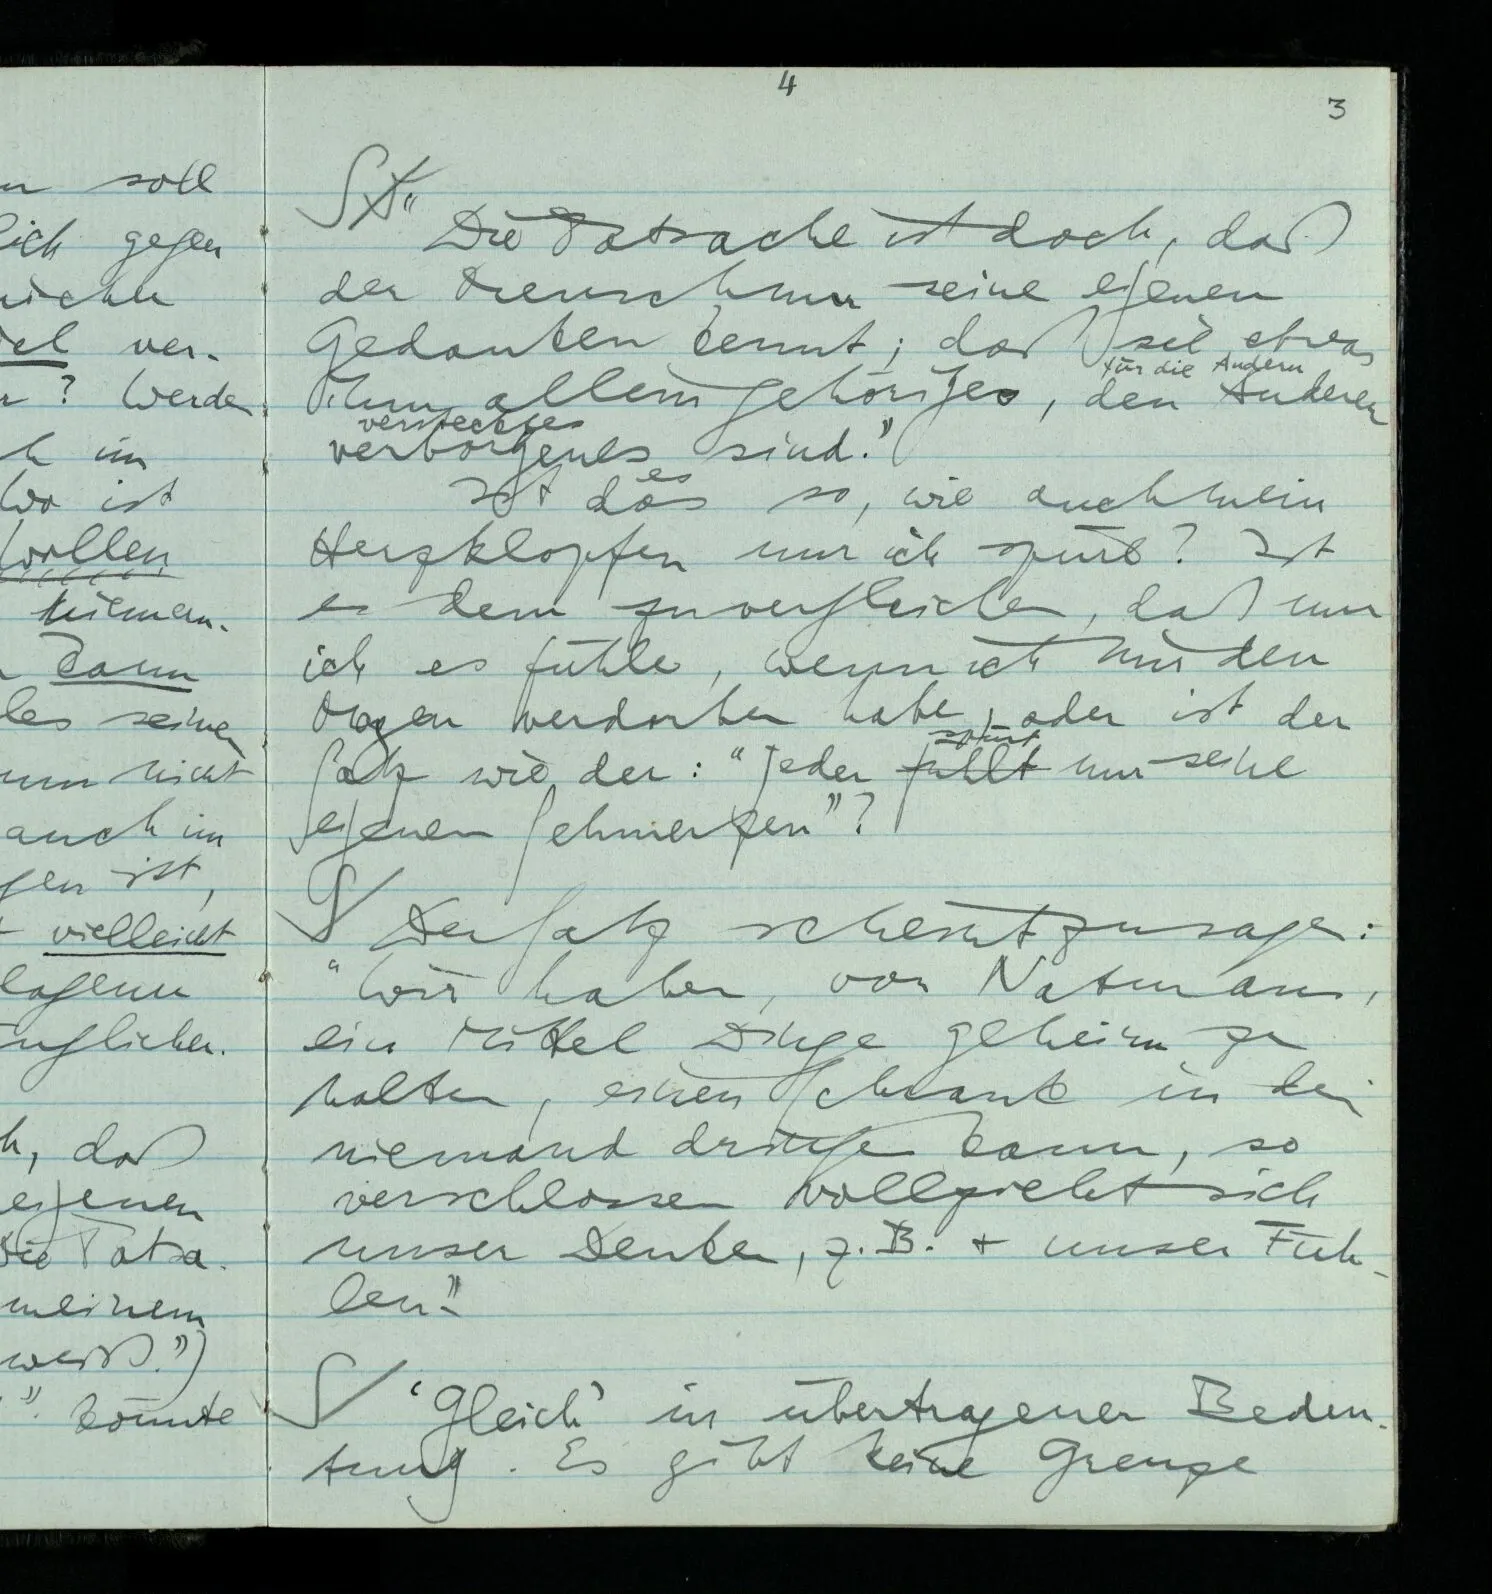 n soll
lich gegen
ver-
? Werde
h im
Wo ist
Wollen
niemen-
Dann
les seine
nicht
auch im
gen ist,
vielleicht
lagenen
nglichen.
h, daß
eigenen
die Tatsa-
meinem
weiß.")
". könnte
4
3
"Die Tatsache ist doch, daß
der Mensch nur seine eigenen
Gedanken kennt; daß sie etwas
für die Andern
ihm allein gehöriges, den Anderen
verstecktes
verborgenes sind."
es
Ist das so, wie auch mein
Herzklopfen nur ich spüre? Ist
es dem zu vergleichen, daß nur
ich es fühle, wenn ich mir den
Magen verdorben habe, oder ist der
spürt
Satz wie der: "Jeder fühlt nur seine
eigenen Schmerzen"?
Der Satz scheint zu sagen:
"Wir haben, von Natur aus,
ein Mittel Dinge geheim zu
halten, einen Schrank in den
niemand dringen kann, so
verschlossen vollzieht sich
unser Denken, z.B. + unser Füh-
len."
'Gleich' in übertragener Bedeu-
tung. Es gibt keine Grenze